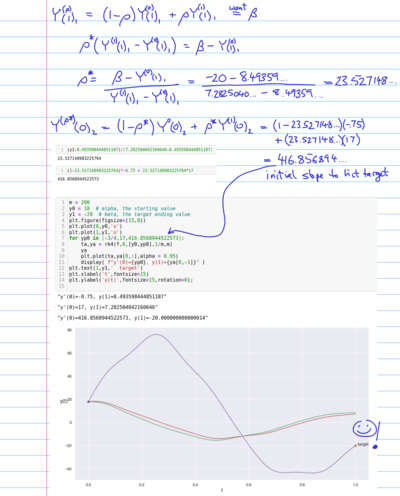 Y^(ρ)(1)_1 = (1-ρ)Y^(0)(1)_1 + ρY^(1)(1)_1 want = β
ρ*(Y^(1)(1)_1 - Y^(0)(1)_1) = β - Y^(0)(1)_1
ρ* = (β - Y^(0)(1)_1)/(Y^(1)(1)_1 - Y^(0)(1)_1) = (-20 - 8.49359...)/(7.2825040... - 8.49359...) = 23.527148...
Y^(ρ*)(0)_2 = (1-ρ*)Y^(0)(0)_2 + ρ*Y^(1)(0)_2 = (1-23.527148...)(-.75)
+(23.527148...)(17)
= 416.856894...
initial slope to hit target
23.527148903225764
1 (1-23.527148903225764)*-0.75 + 23.527148903225764*17
416.8568914522573
1 m = 200
2 y0 = 18 # alpha, the starting value
3 y1 = -20 # beta, the target ending value
4 plt.figure(figsize=(15,8))
5 plt.plot(0,y0,'o')
6 plt.plot(1,y1,'o')
7 for yp0 in [-3/4,17,416.8568914522573]:
8 ta,ya = rk4(f,0,[y0,yp0],1/m,m)
9 ya
10 plt.plot(ta,ya[0,:],alpha = 0.95)
11 display( f"y'(0)={yp0}, y(1)={ya[0,-1]}" )
12 plt.text(1,y1,' target')
13 plt.xlabel('t',fontsize=15)
14 plt.ylabel('y(t)',fontsize=15,rotation=0);
15
"y'(0)=-0.75, y(1)=8.493598444851187"
"y'(0)=17, y(1)=7.282504042160646"
"y'(0)=416.8568914522573, y(1)=-20.000000000000014"
80
60
40
20
y(t)
0
-20
target
-40
0.0 0.2 0.4 0.6 0.8 1.0
t